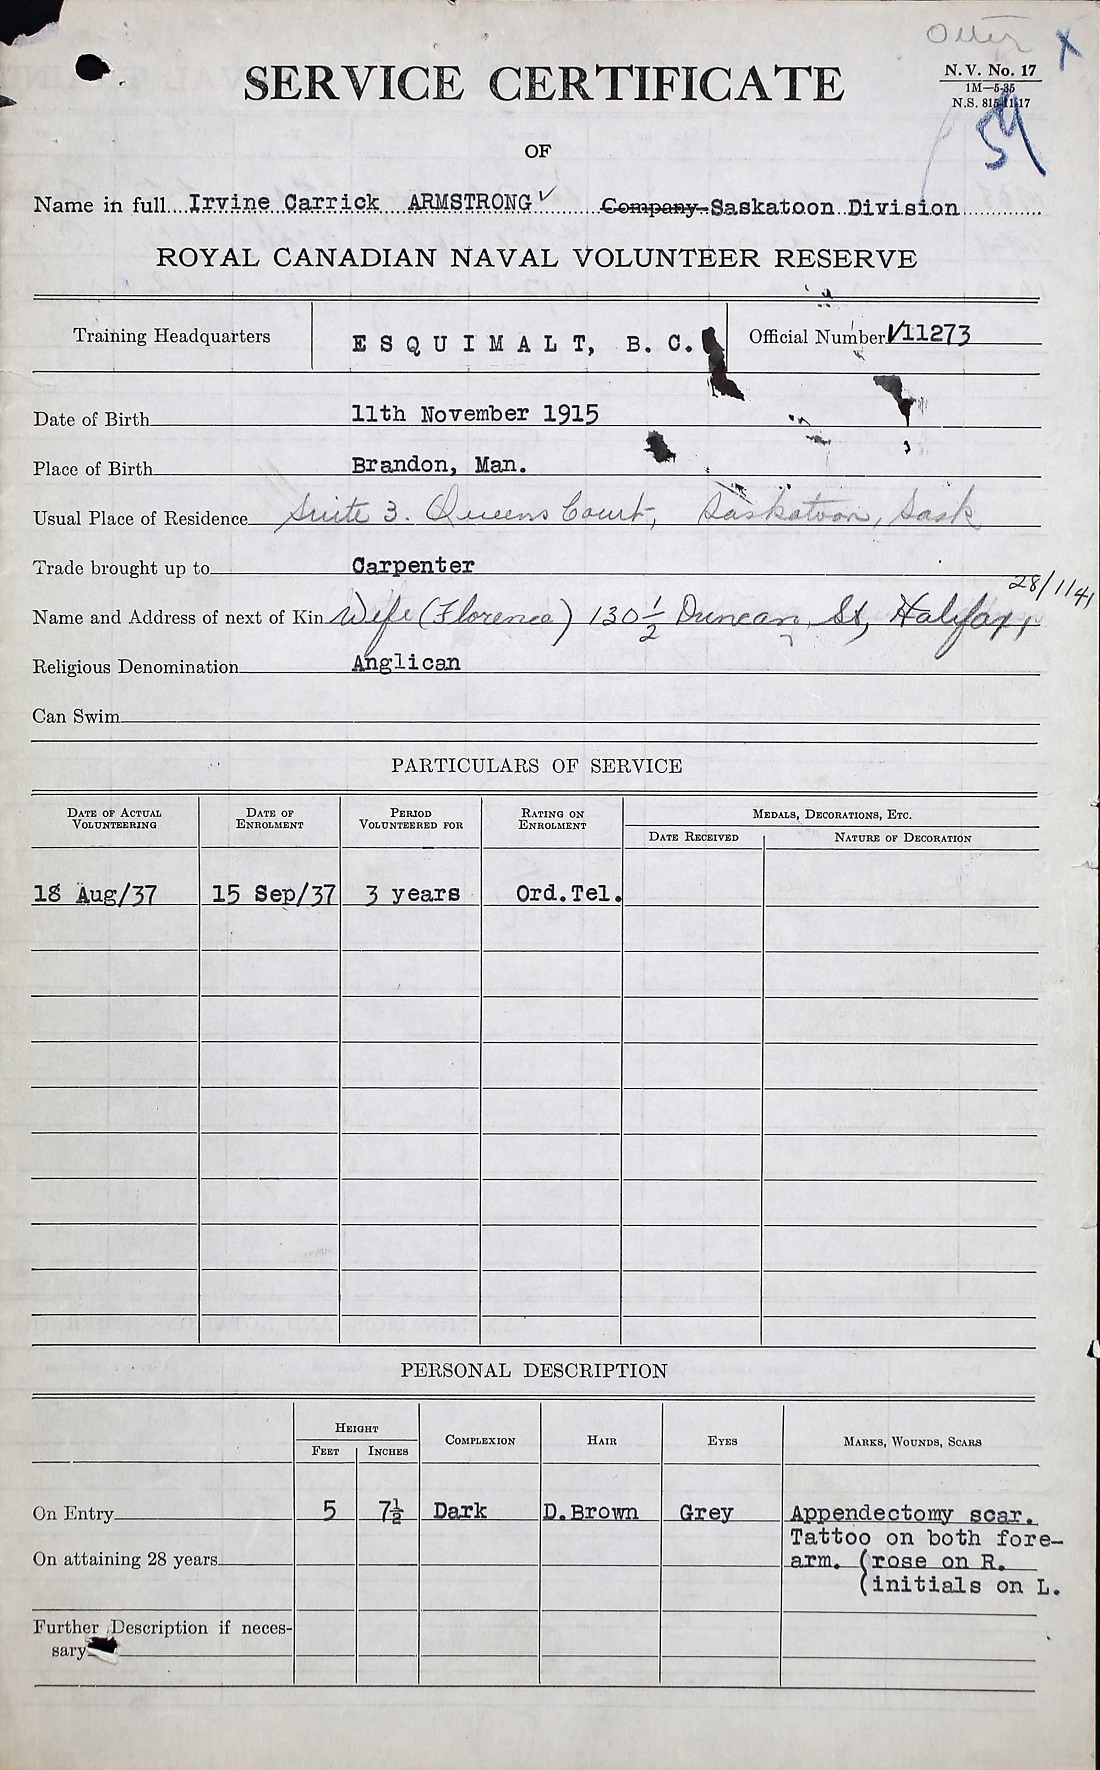 Otter X
SERVICE CERTIFICATE
N. V. No. 17
1M—5-35
N.S. 815-11-17
54
OF
Name in full Irvine Carrick ARMSTRONG ✓ Company Saskatoon Division
ROYAL CANADIAN NAVAL VOLUNTEER RESERVE
Training Headquarters ESQUIMALT, B.C. Official Number V11273
Date of Birth 11th November 1915
Place of Birth Brandon, Man.
Usual Place of Residence Suite 3. Queens Court, Saskatoon, Sask
Trade brought up to Carpenter
28/1/41
Name and Address of next of Kin Wife (Florence) 130 1/2 Duncan St, Halifax,
Religious Denomination Anglican
Can Swim
PARTICULARS OF SERVICE
DATE OF ACTUAL VOLUNTEERING DATE OF ENROLMENT PERIOD VOLUNTEERED FOR RATING ON ENROLMENT MEDALS, DECORATIONS, ETC.
DATE RECEIVED NATURE OF DECORATION
18 Aug/37 15 Sep/37 3 years Ord.Tel.
PERSONAL DESCRIPTION
HEIGHT COMPLEXION HAIR EYES MARKS, WOUNDS, SCARS
FEET INCHES
On Entry 5 7½ Dark D.Brown Grey Appendectomy scar.
Tattoo on both fore-
On attaining 28 years arm. (rose on R.
(initials on L.
Further Description if neces-
sary